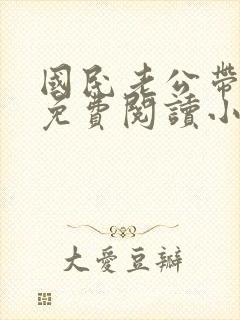 國民老公帶
免費閱讀小
大愛豆瓣